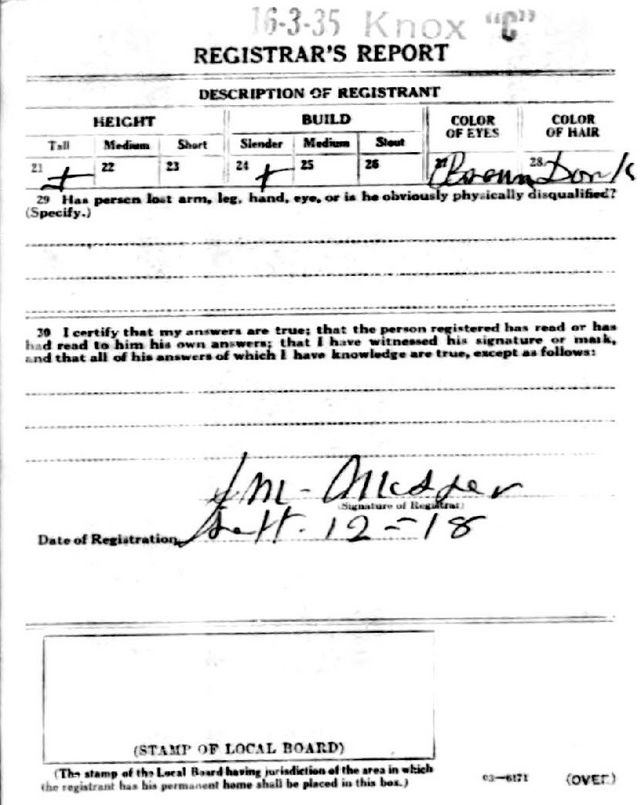 16-3-35 Knox "C"
REGISTRAR'S REPORT
DESCRIPTION OF REGISTRANT
HEIGHT BUILD COLOR OF EYES COLOR OF HAIR
Tall Medium Short Slender Medium Stout
21 + 22 23 24 + 25 26 27 Brown 28 Dark
29 Has person lost arm, leg, hand, eye, or is he obviously physically disqualified?
(Specify.)
30 I certify that my answers are true; that the person registered has read or has
had read to him his own answers; that I have witnessed his signature or mark,
and that all of his answers of which I have knowledge are true, except as follows:
(Signature of Registrar)
Date of Registration Sept. 12-18
(STAMP OF LOCAL BOARD)
(The stamp of the Local Board having jurisdiction of the area in which
the registrant has his permanent home shall be placed in this box.)
03—6171 (OVER)